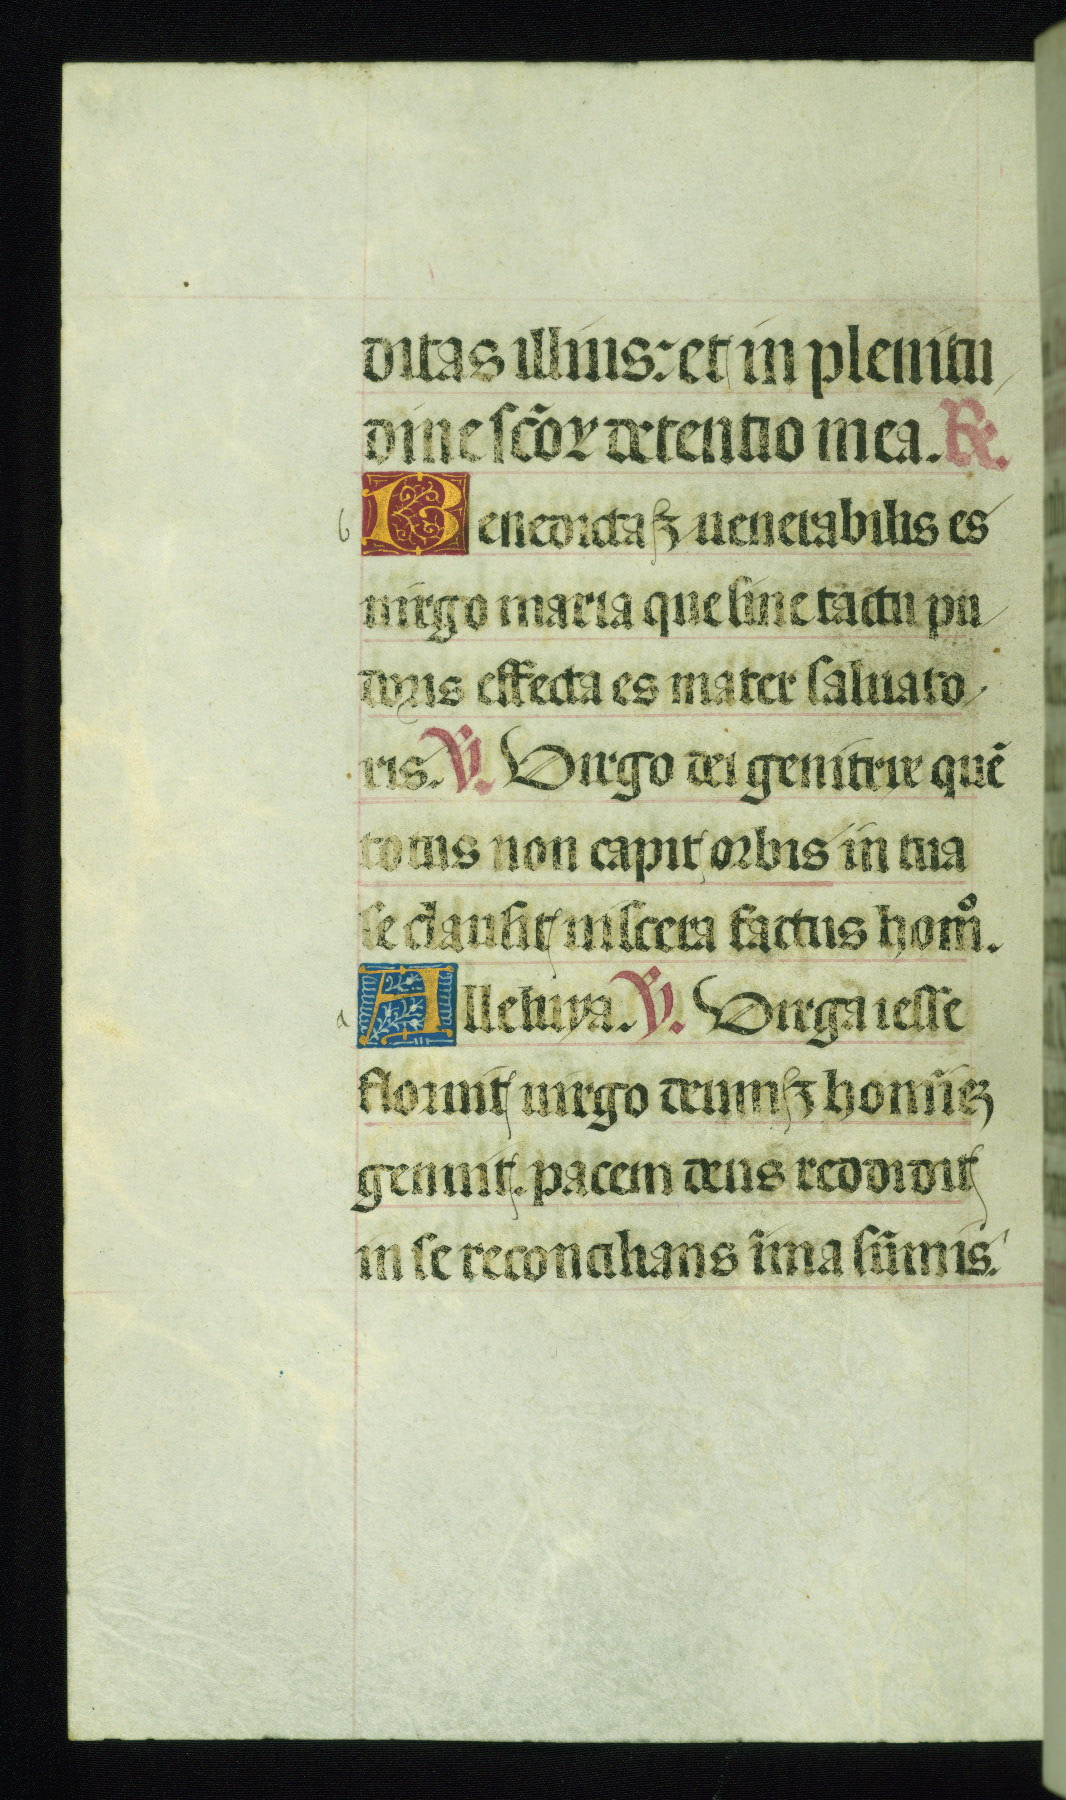 ditas illius: et in plenitu
dine sc̃oꝝ detentio mea. R̃.
Benedicta ꝫ uenerabilis es
uirgo maria que sine tactu pu
doris effecta es mater saluato
ris. V̸. Uirgo dei genitrix quẽ
totus non capit orbis in tua
se clausit uiscera factus homͦ.
b
Alleluya. V̸. Uirga iesse
a
floruit uirgo deum ꝫ hominẽꝫ
genuit. pacem deus reddidit
in se reconcilians ĩma sũmis.